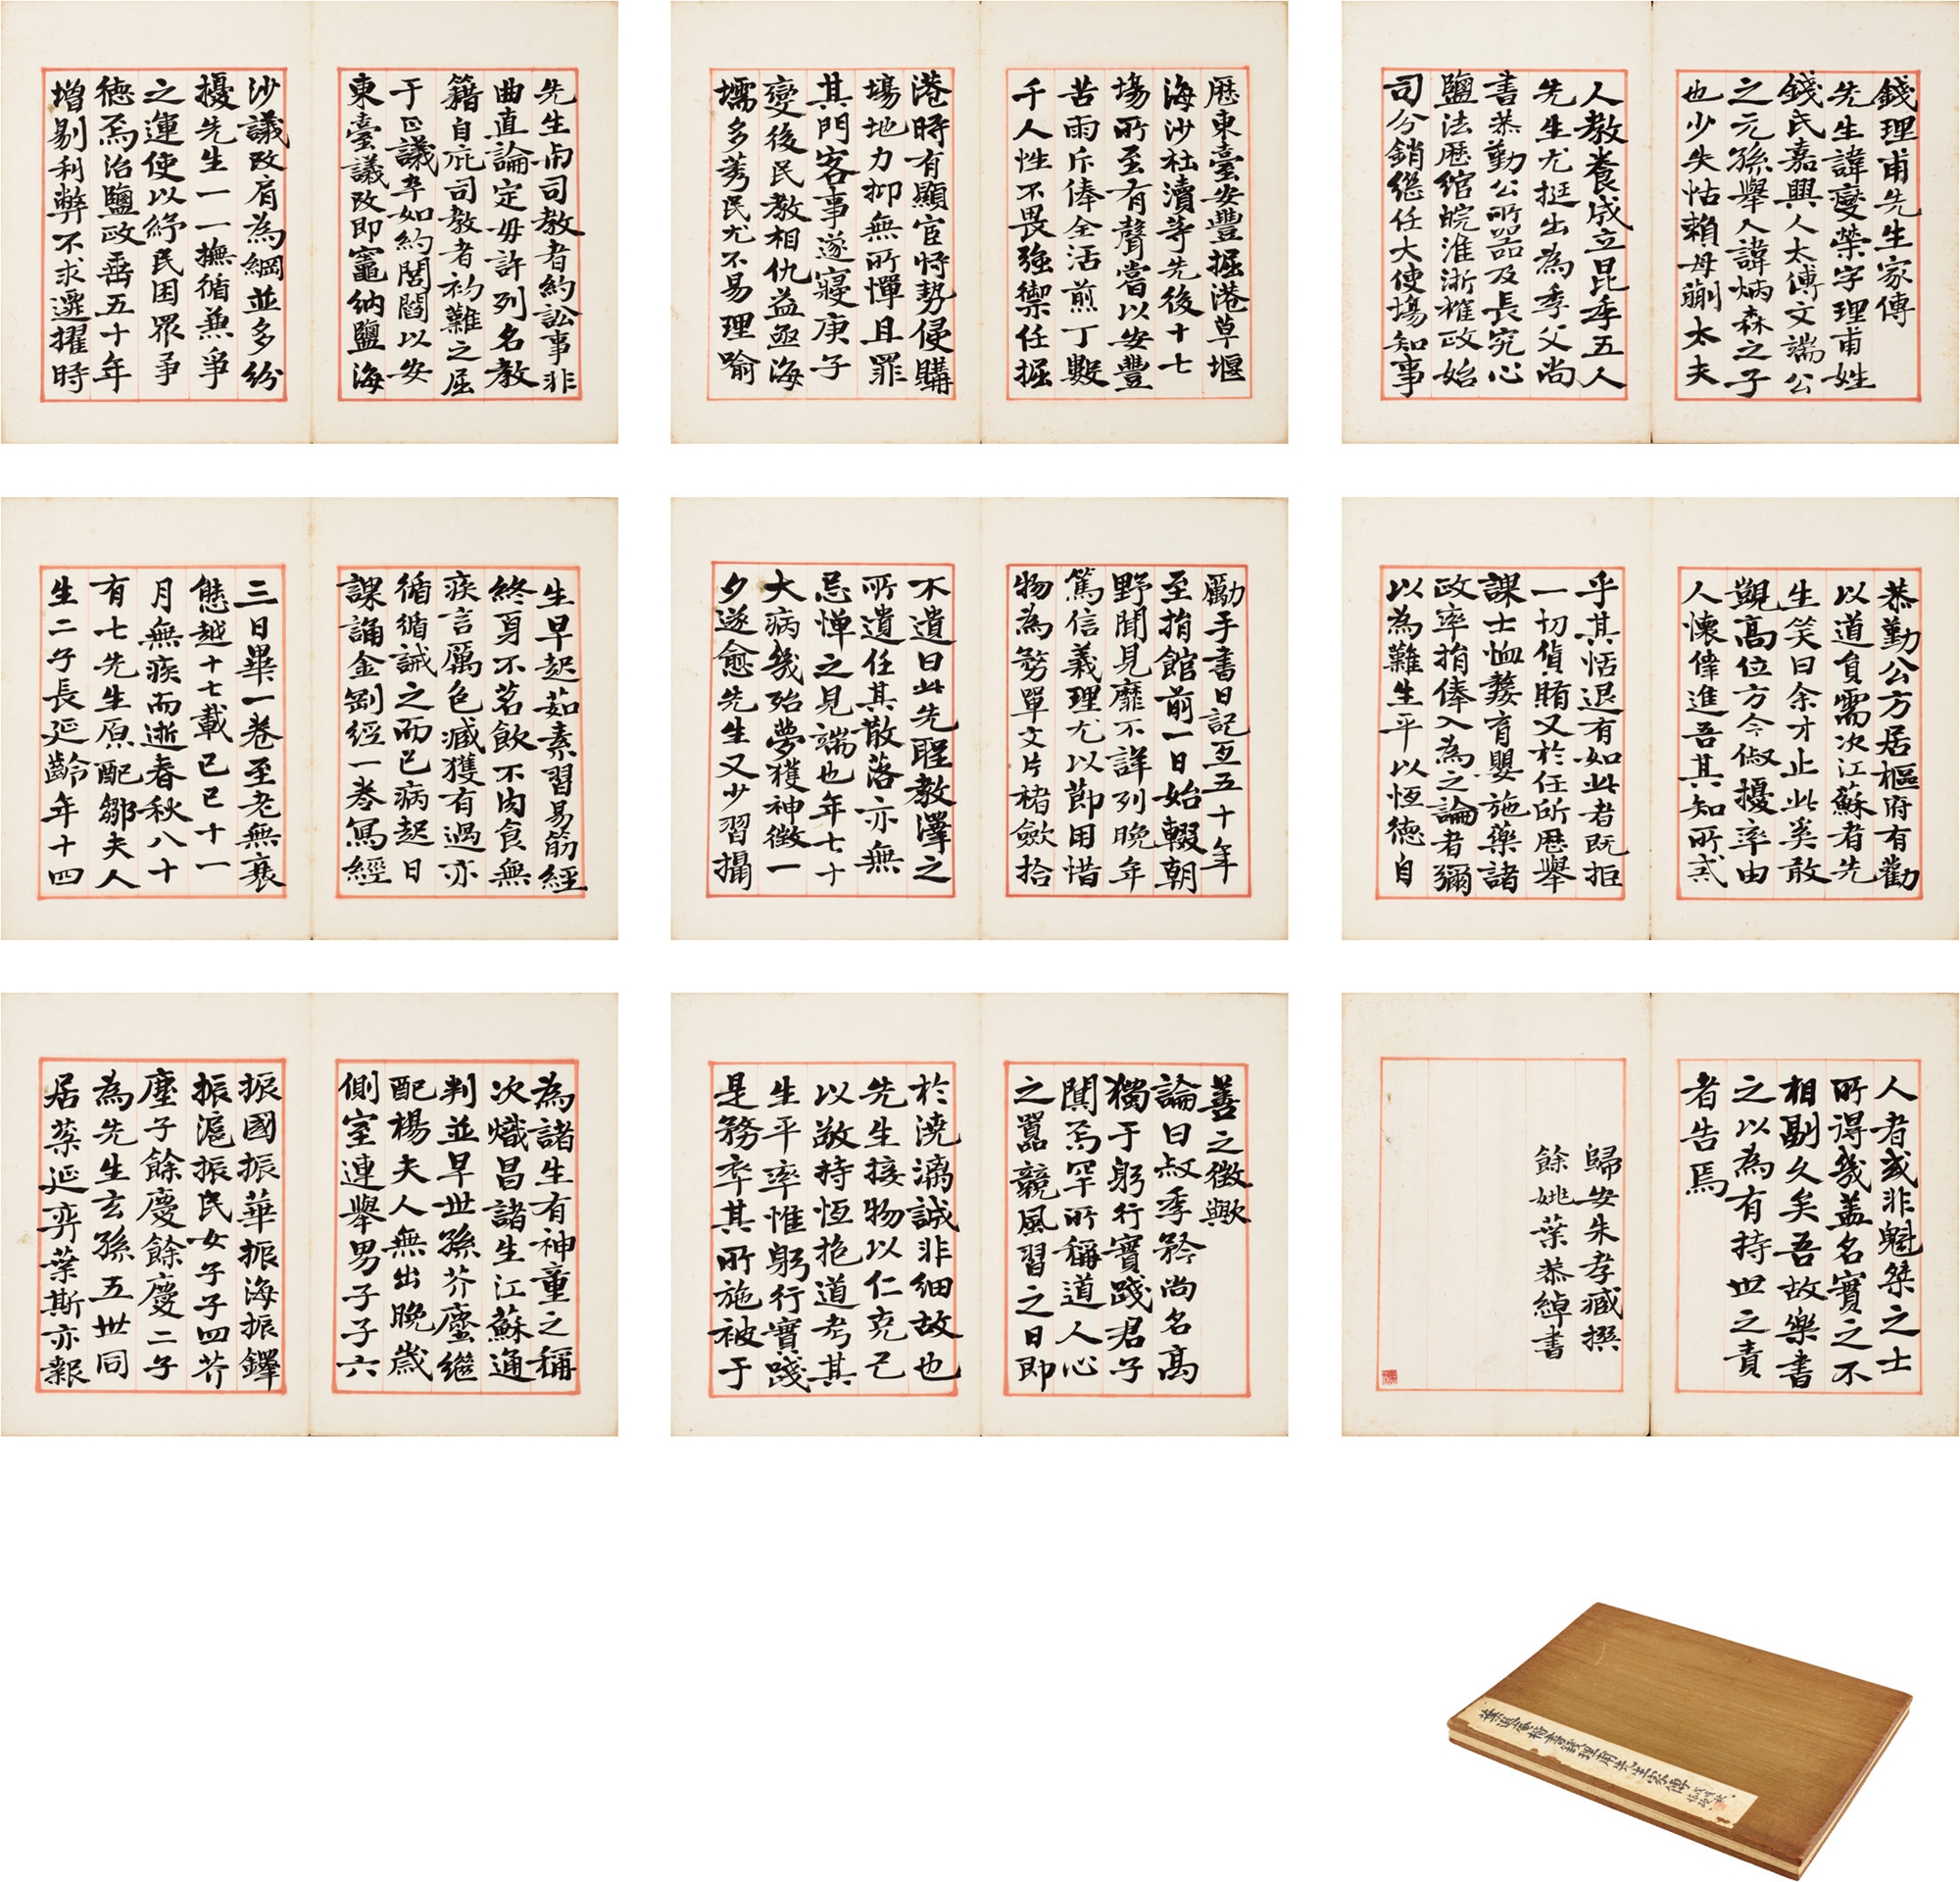 錢理甫先生家傳
先生諱燮榮字理甫姓
錢氏嘉興人太傅文端公
之元孫舉人諱炳森之子
也少失怙賴母蒯太夫
人教養成立昆季五人
先生尤挺出為季父尚
書恭勤公所器及長究心
鹽法歷綰皖淮浙榷政始
司分銷繼任大使場知事
歷東臺安豐掘港草堰
海沙杜瀆等先後十七
場所至有聲嘗以安豐
苦雨斥俸全活煎丁數
千人性不畏強禦任掘
港時有顯宦恃勢侵購
場地力抑無所憚且罪
其門客事遂寢庚子
變後民教相仇益亟海
壖多莠民尤不易理喻
先生向司教者約訟事非
曲直論定毋許列名教
籍自庇司教者初難之屈
于正議卒如約閭閻以安
東臺議改即竈納鹽海
沙議改肩為綱並多紛
擾先生一一撫循兼爭
之運使以紓民困眾爭
德焉治鹽政垂五十年
增剔利弊不求選擢時
恭勤公方居樞府有勸
以道員需次江蘇者先
生笑曰余才止此奚敢
覬高位方今俶擾率由
人懷倖進吾其知所弍
乎其恬退有如此者既拒
一切貨賄又於任所歷舉
課士恤嫠育嬰施藥諸
政率捐俸入為之論者彌
以為難生平以恆德自
勵手書日記亙五十年
至捐館前一日始輟朝
野聞見靡不詳列晚年
篤信義理尤以節用惜
物為務單文片楮斂拾
不遺曰此先聖教澤之
所遺任其散落亦無
忌憚之見端也年七十
大病幾殆夢獲神徵一
夕遂愈先生又少習攝
生早起茹素習易筋經
終身不茗飲不肉食無
疾言厲色臧獲有過亦
循循誡之而已病起日
課誦金剛經一卷寫經
三日畢一卷至老無衰
態越十七載己巳十一
月無疾而逝春秋八十
有七先生原配鄒夫人
生二子長延齡年十四
為諸生有神童之稱
次熾昌諸生江蘇通
判並早世孫芥塵繼
配楊夫人無出晚歲
側室連舉男子子六
振國振華振海振鐸
振滬振民女子子四芥
塵子餘慶餘慶二子
為先生玄孫五世同
居蕐延弈葉斯亦報
善之徵歟
論曰叔季矜尚名高
獨于躬行實踐君子
闃焉罕所稱道人心
之囂競風習之日即
於澆漓誠非細故也
先生接物以仁克己
以敬持恆抱道考其
生平率惟躬行實踐
是務卒其所施被于
人者或非魁桀之士
所得幾蓋名實之不
相副久矣吾故樂書
之以為有持世之責
者告焉
歸安朱孝臧撰
餘姚葉恭綽書
葉遐庵楷書錢理甫先生家傳